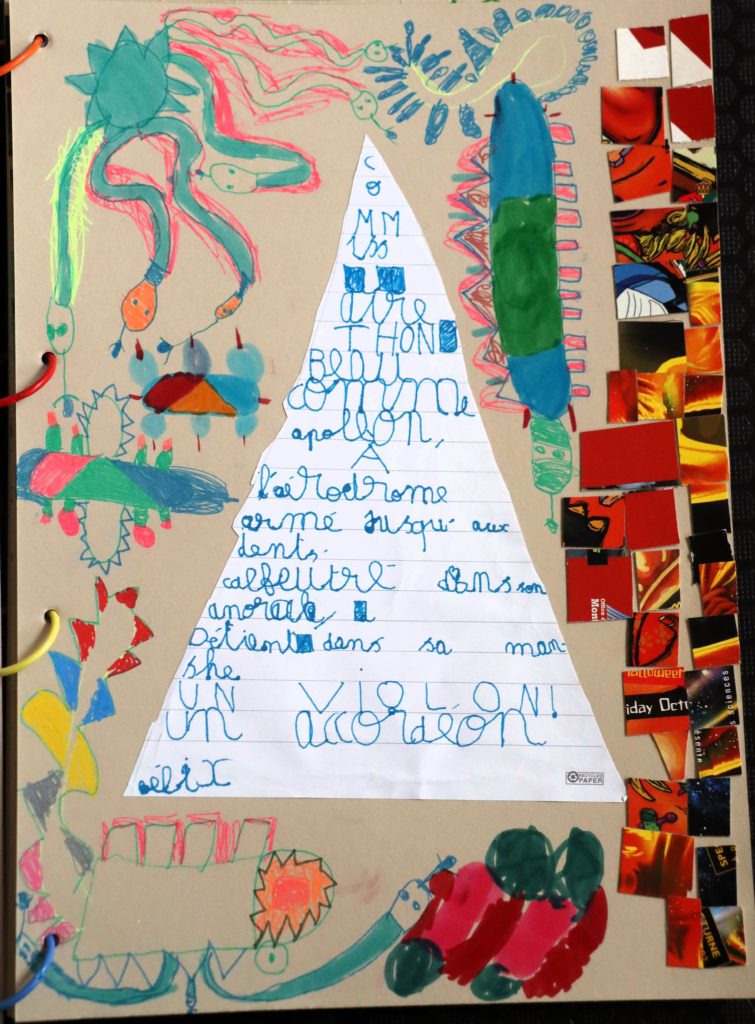 C
O
MM
iss
aire
THON
BEAU
comme
apollon,
A
l'aérodrome
armé jusqu'aux
dents.
calfeutré dans son
anorak,
Détient dans sa man-
she
UN VIOLON!
un accordéon
félix
RECYCLED
PAPER
iday Octo
s sciences
ésente
Office
Mont
SPE
CTURNE